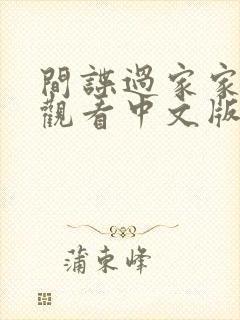 間諜過家家
觀看中文版
蒲束峰